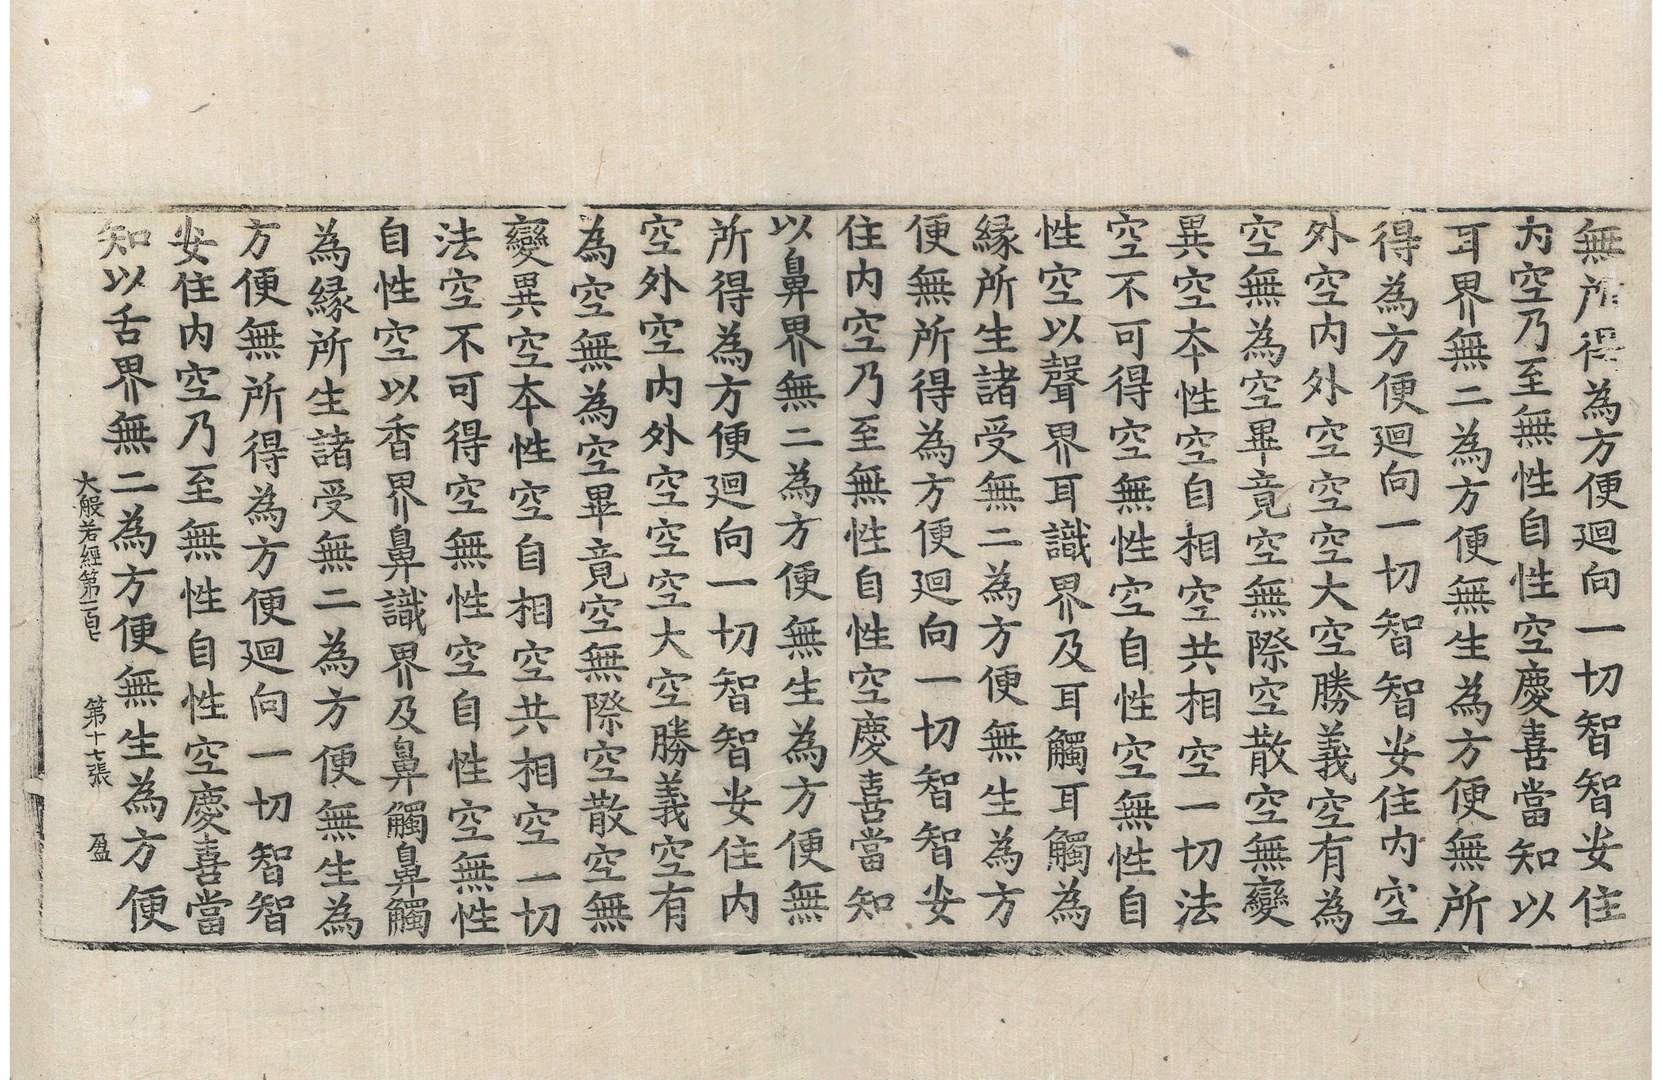 無所得為方便廻向一切智智安住
内空乃至無性自性空慶喜當知以
耳界無二為方便無生為方便無所
得為方便廻向一切智智安住内空
外空内外空空空大空勝義空有為
空無為空畢竟空無際空散空無變
異空夲性空自相空共相空一切法
空不可得空無性空自性空無性自
性空以聲界耳識界及耳觸耳觸為
緣所生諸受無二為方便無生為方
便無所得為方便廻向一切智智安
住内空乃至無性自性空慶喜當知
以鼻界無二為方便無生為方便無
所得為方便廻向一切智智安住内
空外空内外空空空大空勝義空有
為空無為空畢竟空無際空散空無
變異空夲性空自相空共相空一切
法空不可得空無性空自性空無性
自性空以香界鼻識界及鼻觸鼻觸
為緣所生諸受無二為方便無生為
方便無所得為方便廻向一切智智
安住内空乃至無性自性空慶喜當
知以舌界無二為方便無生為方便
大般若經第一百七 第十七張 盈